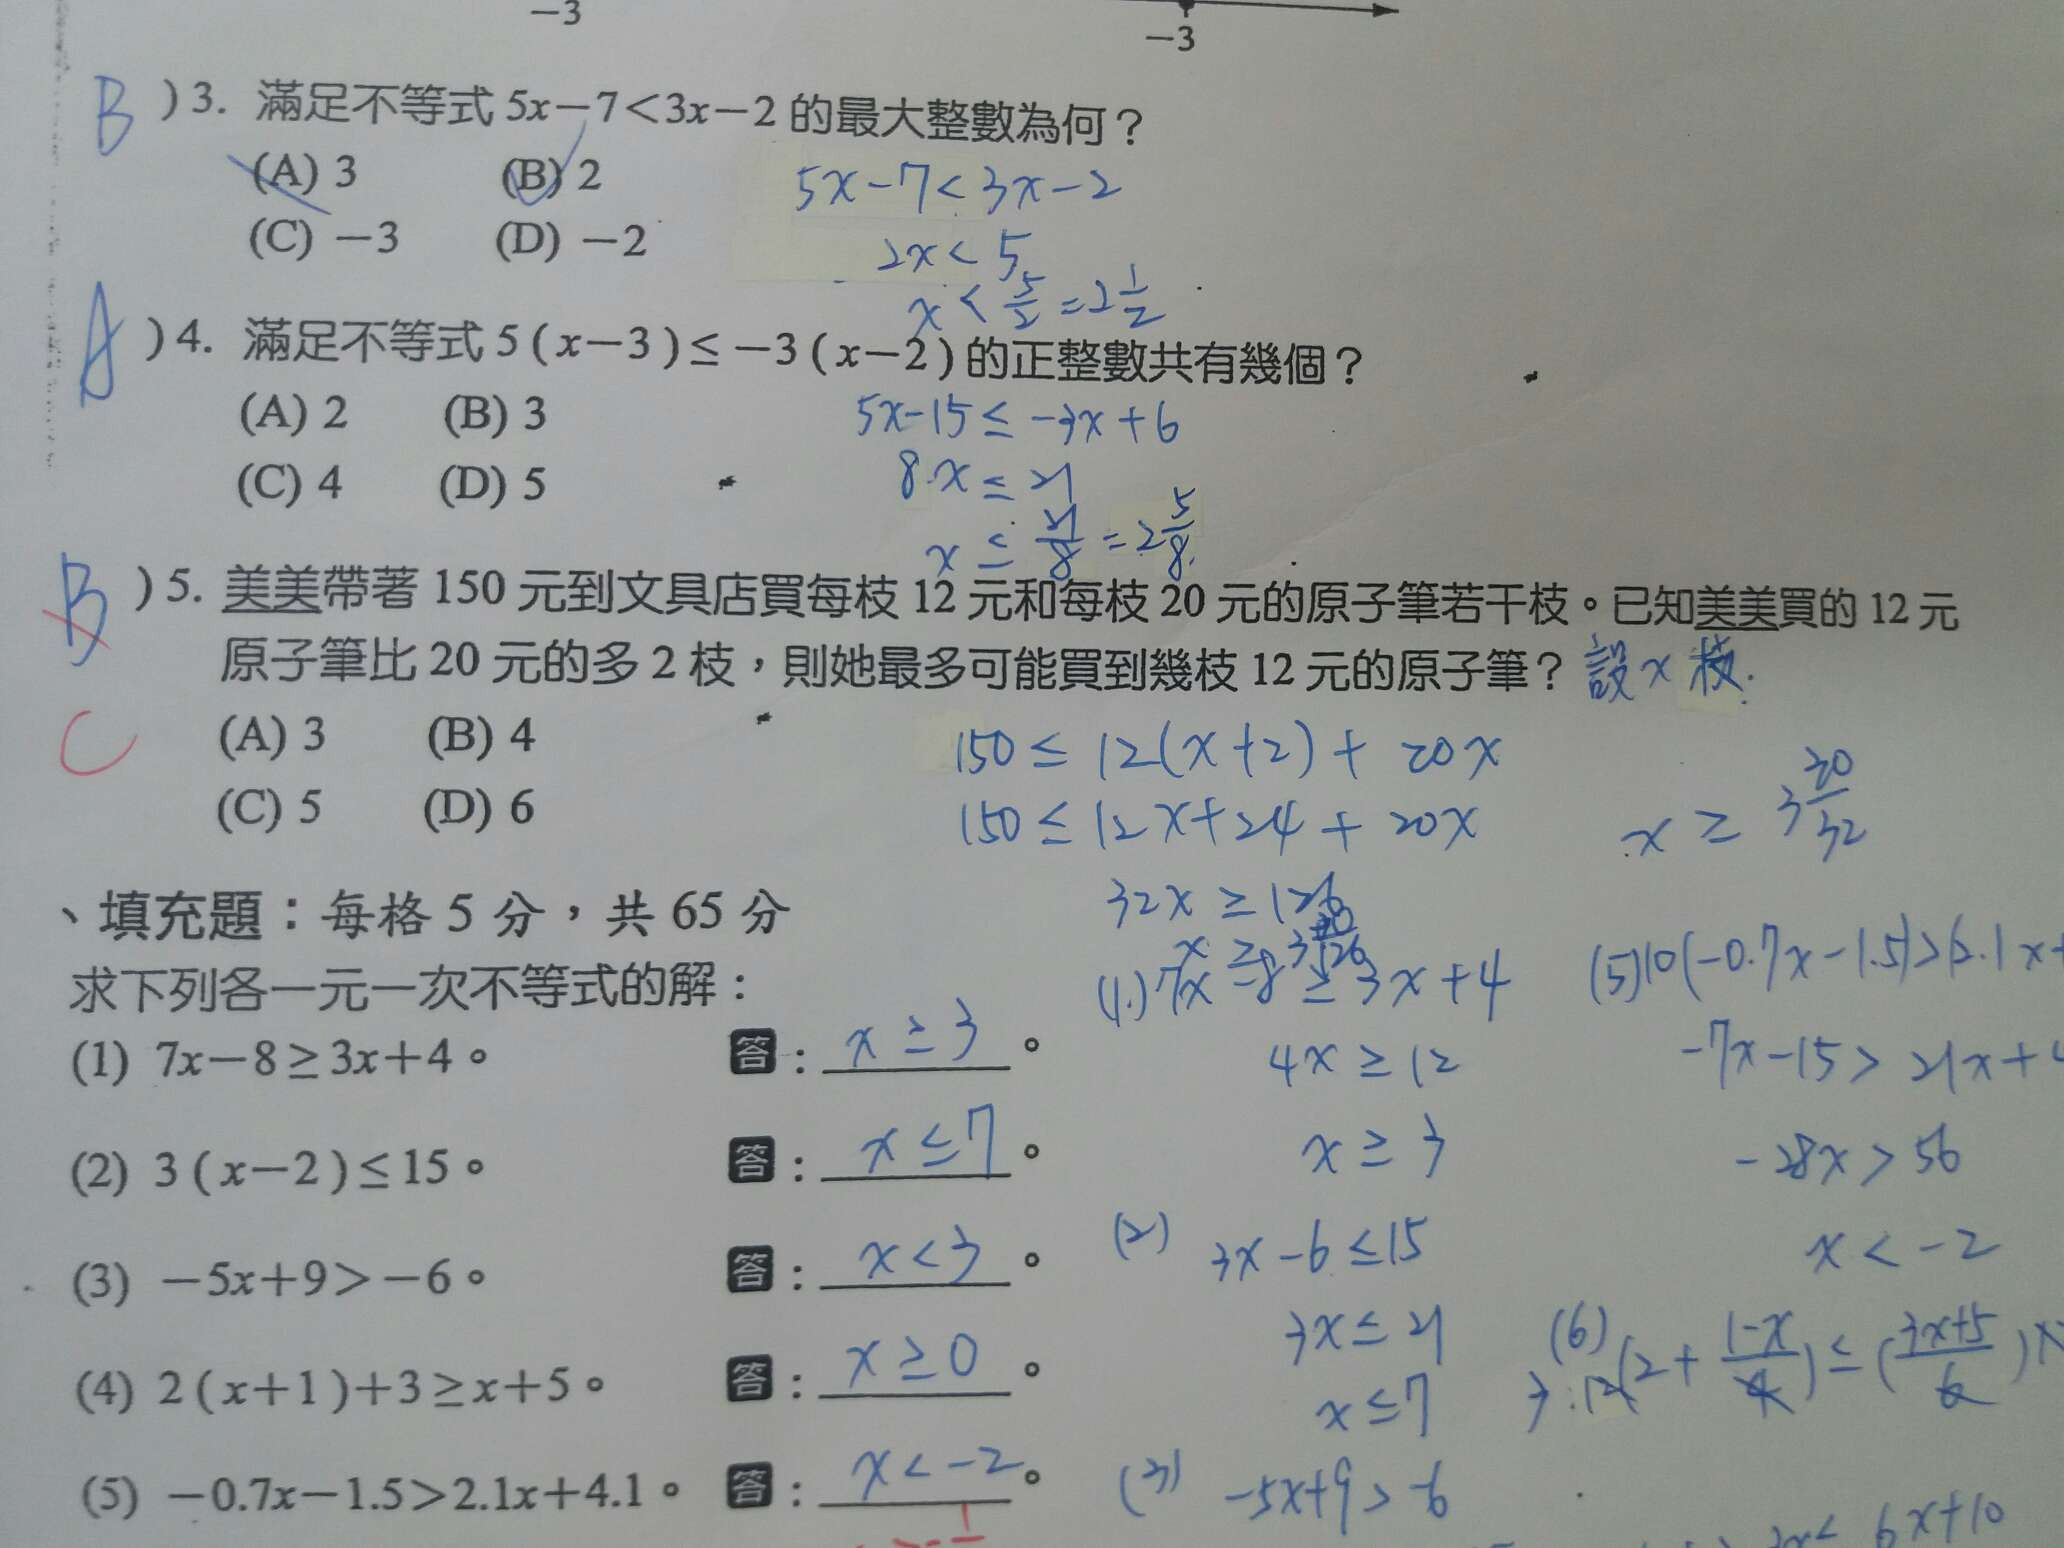 −3 −3
B )3. 滿足不等式 5x−7<3x−2 的最大整數為何？
(A) 3 (B) 2
5x−7<3x−2
(C) −3 (D) −2
2x<5
x<5/2=2 1/2
A )4. 滿足不等式 5(x−3)≤−3(x−2)的正整數共有幾個？
(A) 2 (B) 3
5x−15≤−3x+6
(C) 4 (D) 5
8x≤21
x≤21/8=2 5/8
B )5. 美美帶著 150 元到文具店買每枝 12 元和每枝 20 元的原子筆若干枝。已知美美買的 12 元
原子筆比 20 元的多 2 枝，則她最多可能買到幾枝 12 元的原子筆？ 設x枝.
C (A) 3 (B) 4
150≤12(x+2)+20x
(C) 5 (D) 6
150≤12x+24+20x
x≥3 30/32
32x≥126
、填充題：每格 5 分，共 65 分
求下列各一元一次不等式的解：
(1) 7x−8≥3x+4。 答：x≥3。
(2) 3(x−2)≤15。 答：x≤7。
(3) −5x+9>−6。 答：x<3。
(4) 2(x+1)+3≥x+5。 答：x≥0。
(5) −0.7x−1.5>2.1x+4.1。 答：x<−2。
(1.) 7x−8≥3x+4
4x≥12
x≥3
(2) 3x−6≤15
3x≤21
x≤7
(3) −5x+9>−6
(5)10(−0.7x−1.5)>(2.1x+
−7x−15>21x+4
−28x>56
x<−2
(6) 12(2+(1−x)/4)≤((3x+5)/6)×
6x+10